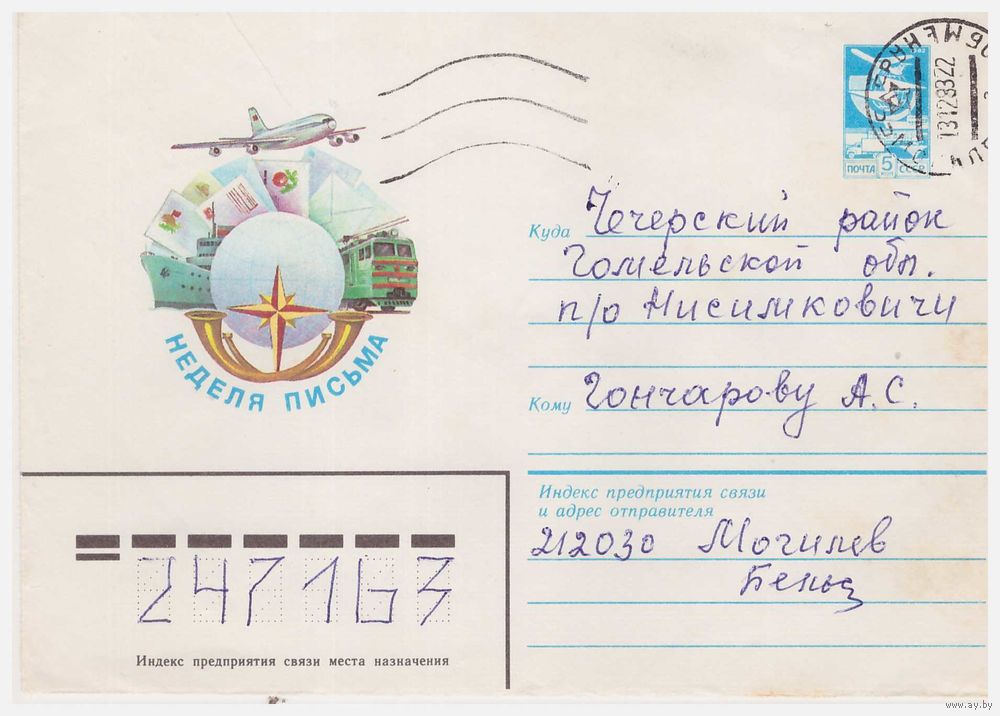 НЕДЕЛЯ ПИСЬМА
1982
ПОЧТА 5 КОП СССР
13128322
Куда Чечерский район
Гомельской обл.
п/о Нисимковичи
Кому Гончарову А.С.
Индекс предприятия связи
и адрес отправителя
212030 Могилев
247163
Индекс предприятия связи места назначения
www.ay.by